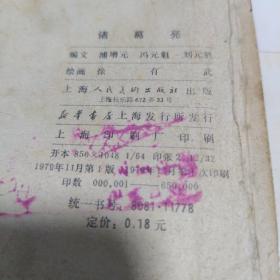 诸葛亮
编文 潘增元 冯元魁 刘元
绘画 徐有武
上海人民美术出版社 出版
上海长乐路672弄33号
新华书店上海发行所发行
上海印刷 厂印刷
开本 850×1048 1/64 印张 2 12/32
1979年11月第1版 1979年 月第1次印刷
印数 000,001—650,000
统一书号：8081·11778
定价：0.18元